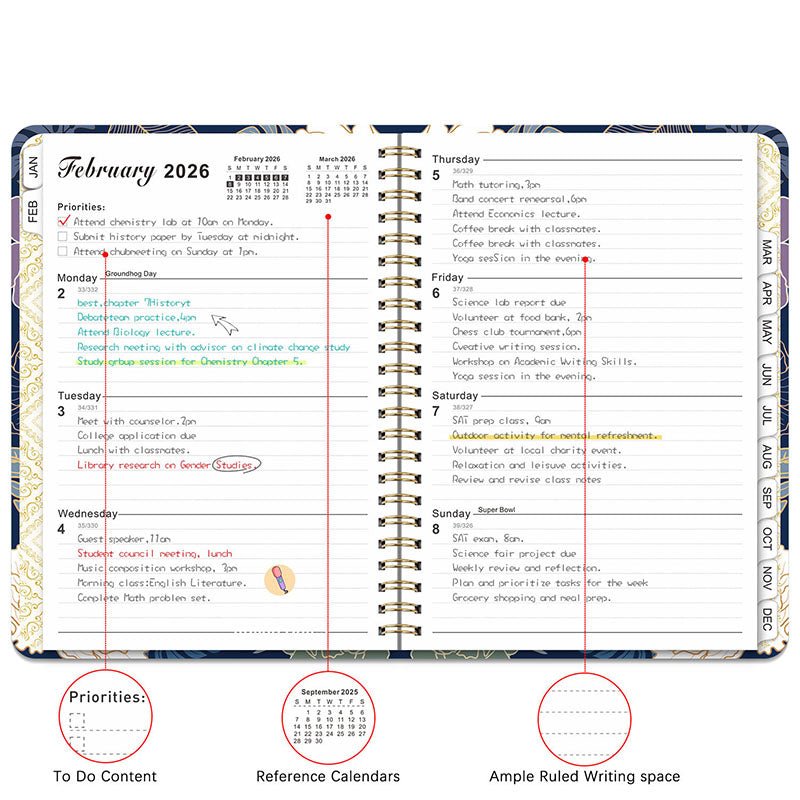 JAN
FEB
February 2026
February 2026
S M T W T F S
1 2 3 4 5 6 7
8 9 10 11 12 13 14
15 16 17 18 19 20 21
22 23 24 25 26 27 28
March 2026
S M T W T F S
1 2 3 4 5 6 7
8 9 10 11 12 13 14
15 16 17 18 19 20 21
22 23 24 25 26 27 28
29 30 31
Priorities:
Attend chemistry lab at 10am on Monday.
Submit history paper by Tuesday at midnight.
Attend chubneeting on Sunday at 1pm.
Monday Groundhog Day
2
33/332
best,chapter 7Historyt
Debatetean practice,4pm
Attend Biology lecture.
Research meeting with advisor on climate change study
Study grbup session for Chemistry Chapter 5.
Tuesday
3
34/331
Meet with counselor,2pm
College application due
Lunch with classmates.
Library research on Gender Studies.
Wednesday
4
35/330
Guest speaker,11am
Student council meeting, lunch
Music composition workshop, 3pm
Morning class:English Literature.
Complete Math problem set.
Thursday
5
36/329
Math tutoring,3pm
Band concert rehearsal,6pm
Attend Economics lecture.
Coffee break with classmates.
Coffee break with classmates.
Yoga sesSion in the evening.
Friday
6
37/328
Science lab report due
Volunteer at food bank, 2pm
Chess club tournament,6pm
Cveative writing session.
Workshop on Academic Writing Skills.
Yoga session in the evening.
Saturday
7
38/327
SAT prep class, 9am
Outdoor activity for mental refreshment.
Volunteer at local charity event.
Relaxation and leisuve activities.
Review and revise class notes
Sunday Super Bowl
8
39/326
SAT exam, 8am.
Science fair project due
Weekly review and reflection.
Plan and prioritize tasks for the week
Grocery shopping and meal prep.
MAR
APR
MAY
JUN
JUL
AUG
SEP
OCT
NOV
DEC
Priorities:
September 2025
S M T W T F S
1 2 3 4 5 6
7 8 9 10 11 12 13
14 15 16 17 18 19 20
21 22 23 24 25 26 27
28 29 30
To Do Content
Reference Calendars
Ample Ruled Writing space